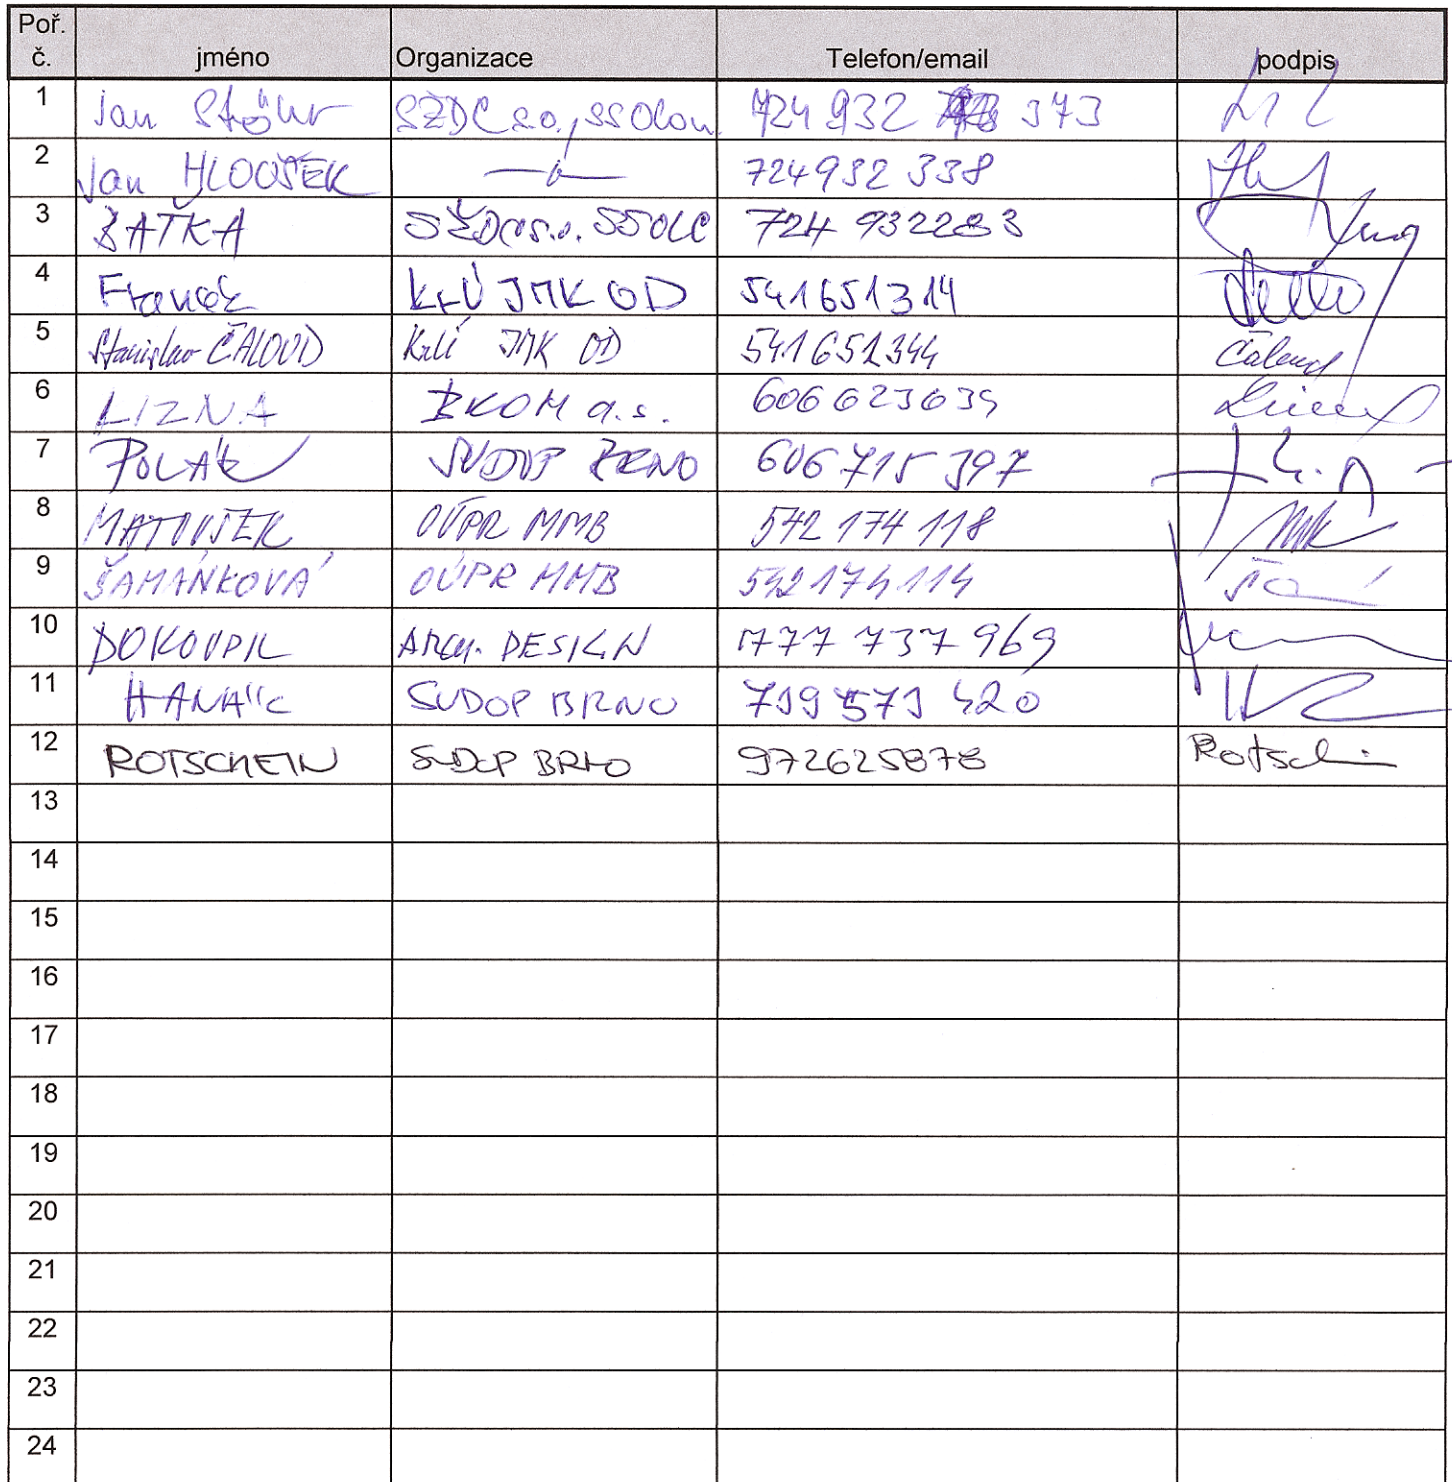 Poř. č. jméno Organizace Telefon/email podpis
1 Jan Stöhr SŽDC s.o., SSOlom. 724 932 373
2 Jan HLOUŠEK —„— 724932 338
3 BAŤKA SŽDC s.o. SSOLC 724 932283
4 Franěk KrÚ JMK OD 541651314
5 Stanislav ČALOUD KrÚ JMK OD 541651344 Čaloud
6 LIZNA BKOM a.s. 606 623 639
7 POLÁK SUDOP BRNO 606 715 397
8 MATOUŠEK OÚPR MMB 542 174 118
9 ŠAMÁNKOVÁ OÚPR MMB 542174114
10 DOKOUPIL ARCH. DESIGN 777 737 969
11 HANÁK SUDOP BRNO 739 573 420
12 ROTSCHEIN SUDOP BRNO 972625878 Rotschein
13
14
15
16
17
18
19
20
21
22
23
24